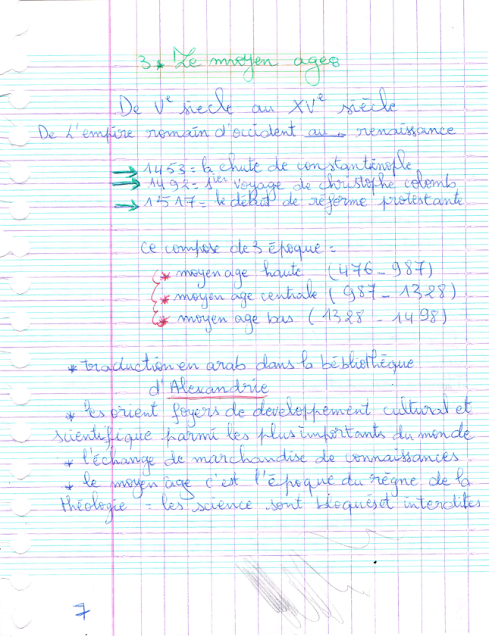 3. Le moyen ages
De Ve siecle au XVe siècle
De L'empire romain d'occident au renaissance
→ 1453 = la chute de constantinople
→ 1492 = 1ier voyage de christophe colomb
→ 1517 = le début de réforme protestante
ce compose de 3 époque =
* moyen age haute (476 - 987)
* moyen age centrale (987 - 1328)
* moyen age bas (1328 - 1498)
* traduction en arab dans la bébliothèque
d'Alexandrie
* les orient foyers de developpement cultural et
scientifique parmi les plus importants du monde
* l'échange de marchandise de connaissances
* le moyen age c'est l'époque du règne de la
théologie = les science sont bloquéset interdites
7